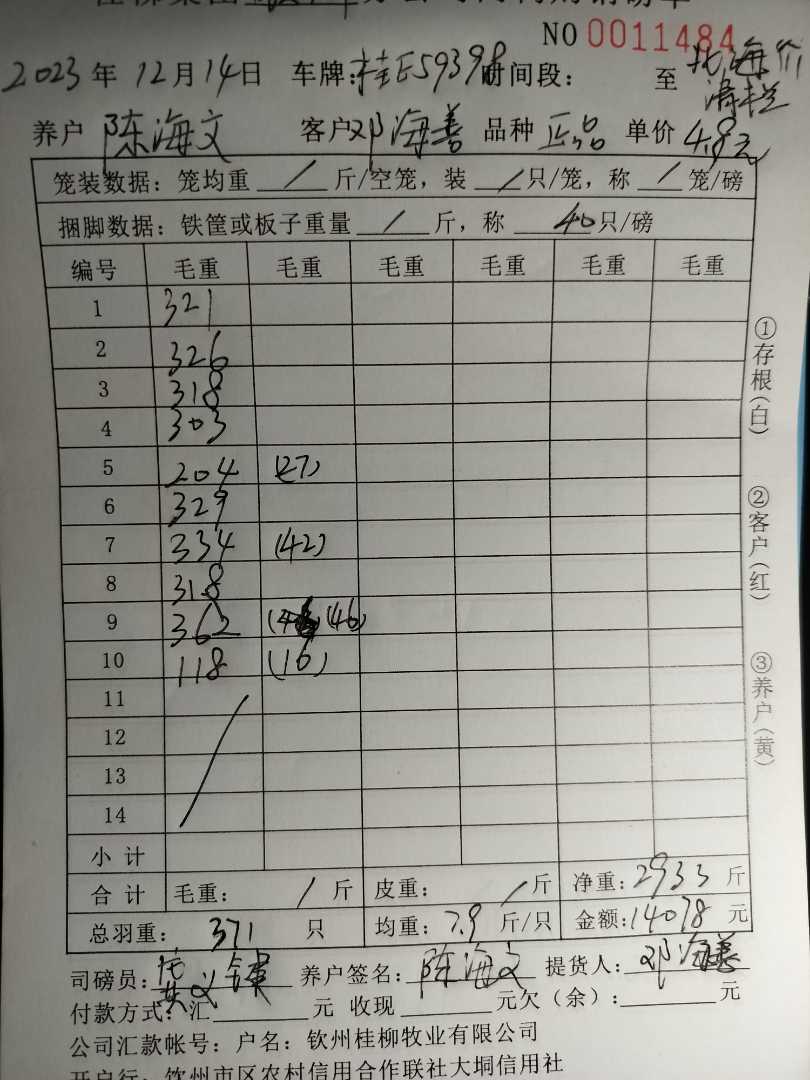 NO 0011484
2023年 12月14日 车牌:桂E59398 时间段: 至 北海价
清栏
养户 陈海文 客户 邓海善 品种 正品 单价 4.8元
笼装数据：笼均重 / 斤/空笼，装 / 只/笼，称 / 笼/磅
捆脚数据：铁筐或板子重量 / 斤，称 40 只/磅
编号 毛重 毛重 毛重 毛重 毛重 毛重
1 321
2 326
3 318
4 303
5 204 (27)
6 329
7 334 (42)
8 318
9 362 (46)
10 118 (16)
11
12
13
14
小 计
合 计 毛重： / 斤 皮重： / 斤 净重：2933 斤
总羽重： 371 只 均重：7.9 斤/只 金额：14078 元
司磅员： 养户签名：陈海文 提货人：邓海善
付款方式：汇 元 收现 元欠（余）： 元
公司汇款帐号：户名：钦州桂柳牧业有限公司
开户行：钦州市区农村信用合作联社大垌信用社
①存根(白)
②客户(红)
③养户(黄)